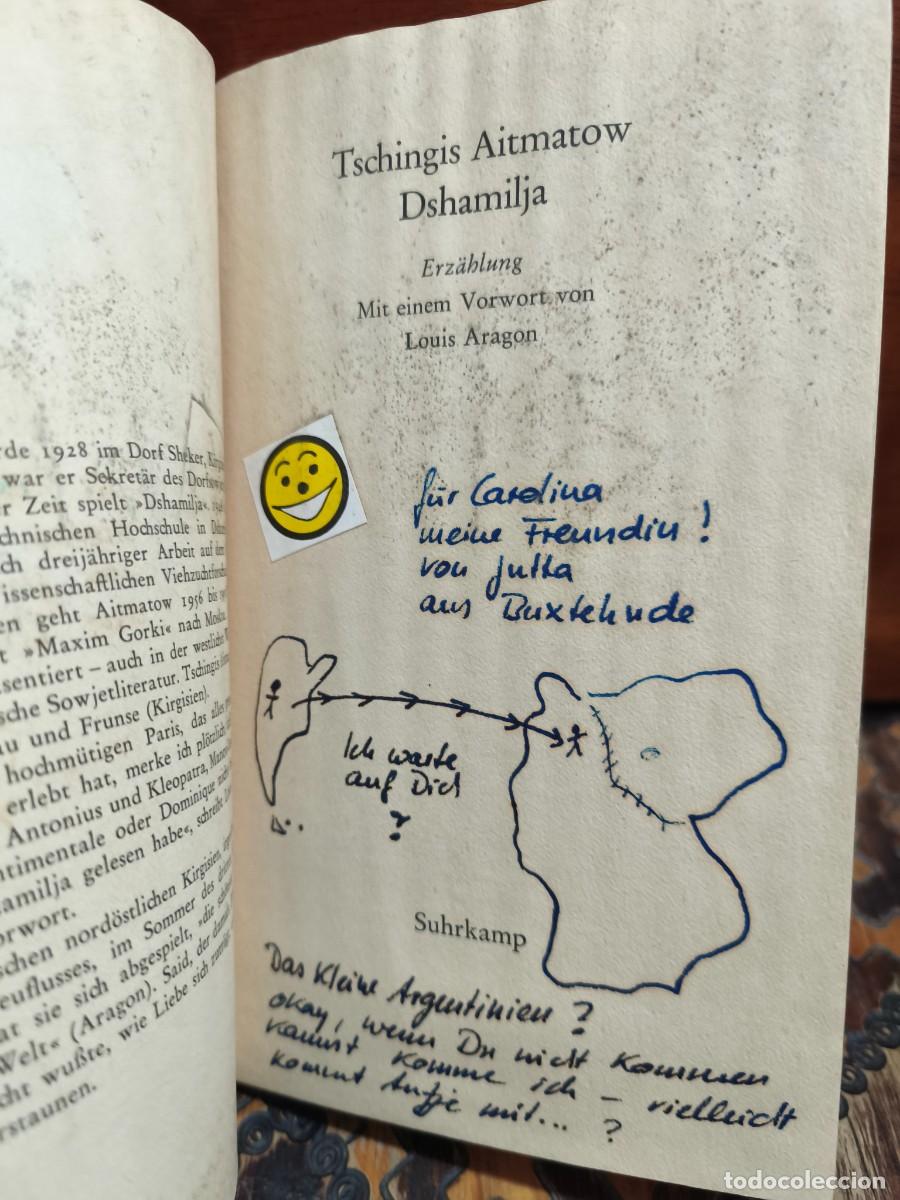 rde 1928 im Dorf Sheker,
war er Sekretär des
r Zeit spielt »Dshamilja«.
chnischen Hochschule in
ch dreijähriger Arbeit auf dem
issenschaftlichen
en geht Aitmatow 1956 bis
t »Maxim Gorki« nach
sentiert – auch in der westlichen
sche Sowjetliteratur. Tschingis
u und Frunse (Kirgisien).
hochmütigen Paris, das alles
erlebt hat, merke ich plötzlich
Antonius und Kleopatra,
ntimentale oder Dominique
amilja gelesen habe«, schreibt
orwort.
schen nordöstlichen Kirgisien,
euflusses, im Sommer des
at sie sich abgespielt, »die
Welt« (Aragon). Said, der
cht wußte, wie Liebe sich
rstaunen.
Tschingis Aitmatow
Dshamilja
Erzählung
Mit einem Vorwort von
Louis Aragon
für Carolina
meine Freundin!
von Jutta
aus Buxtehude
Ich warte
auf Dich
?
Suhrkamp
Das kleine Argentinien?
okay, wenn Du nicht kommen
kannst komme ich – vielleicht
kommt Antje mit... ?
todocoleccion